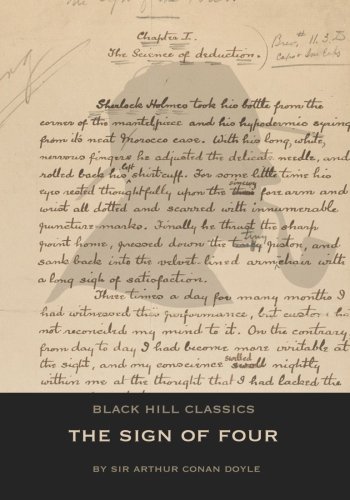 Chapter I.
The Science of deduction.
Sherlock Holmes took his bottle from the
corner of the mantelpiece and his hypodermic syring
from its neat Morocco case. With his long, white,
nervous fingers he adjusted the delicate needle, and
rolled back his left shirtcuff. For some little time his
eyes rested thoughtfully upon the sinewy forearm and
wrist all dotted and scarred with innumerable
puncture marks. Finally he thrust the sharp
point home, pressed down the tiny piston, and
sank back into the velvet-lined armchair with
a long sigh of satisfaction.
Three times a day for many months I
had witnessed this performance, but custom has
not reconciled my mind to it. On the contrary
from day to day I had become more irritable at
the sight, and my conscience swelled nightly
within me at the thought that I had lacked the
BLACK HILL CLASSICS
THE SIGN OF FOUR
BY SIR ARTHUR CONAN DOYLE